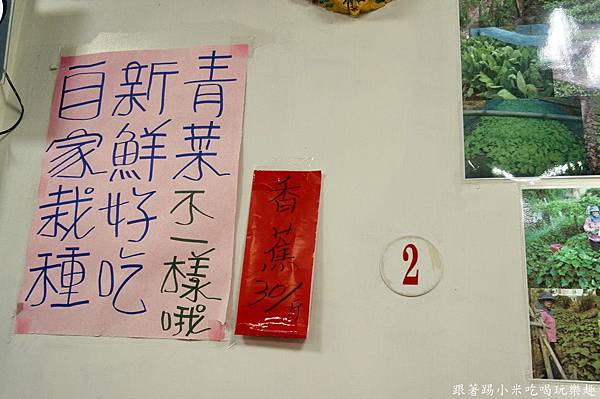 青菜不一樣哦
新鮮好吃
自家栽種
香蕉30/斤
2
跟著踢小米吃喝玩樂趣